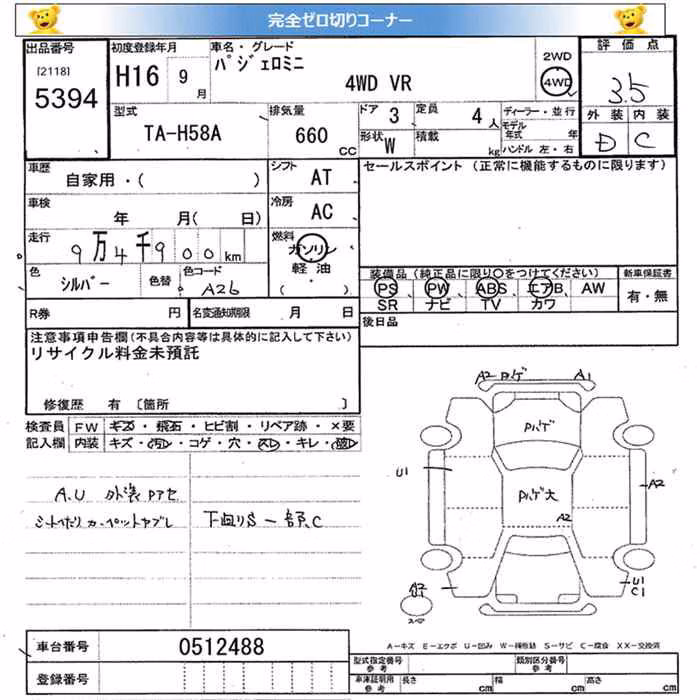 完全ゼロ切りコーナー
出品番号
[2118]
5394
初度登録年月
H16 9月
車名・グレード
パジェロミニ
4WD VR
2WD
4WD
評価点
3.5
外装 内装
D C
型式
TA-H58A
排気量
660 CC
ドア 3
定員 4人
形状 W
積載 kg
ディーラー・並行
モデル年式 年
ハンドル 左・右
車歴
自家用・( )
シフト AT
セールスポイント (正常に機能するものに限ります)
車検
年 月( 日)
冷房 AC
走行
9万4千900km
燃料
ガソリン
軽油
( )
色
シルバー
色替
色コード
A26
装備品 (純正品に限り○をつけてください)
PS、PW、ABS、エアB、AW
SR ナビ TV カワ
新車保証書
有・無
R券 円
名変通知期限 月 日
後日品
注意事項申告欄(不具合内容等は具体的に記入して下さい)
リサイクル料金未預託
修復歴 有 〔箇所 〕
検査員記入欄
FW キズ・飛石・ヒビ割・リペア跡・×要
内装 キズ・汚レ・コゲ・穴・スレ・キレ・破レ
A.U 外装
シートヘたり カーペットヤブレ
下回りS一部C
A2
A1
U1
A2
A2
U1
C1
A-キズ E-エクボ U-凹み W-補修跡 S-サビ C-腐食 XX-交換済
車台番号 0512488
登録番号
型式指定番号 参考
類別区分番号 参考
車庫証明用 参考
長さ cm 幅 cm 高さ cm